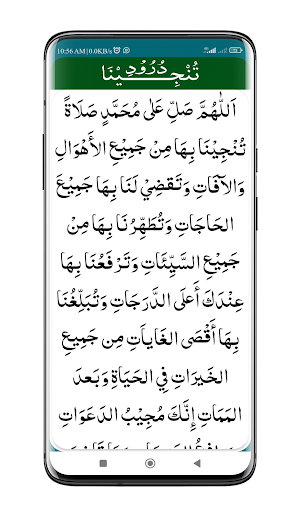 10:56 AM | 0.0KB/s
دُرُودِ تُنْجِيْنَا
اَللّٰهُمَّ صَلِّ عَلٰى مُحَمَّدٍ صَلَاةً
تُنْجِيْنَا بِهَا مِنْ جَمِيْعِ الأَهْوَالِ
وَالآفَاتِ وَتَقْضِيْ لَنَا بِهَا جَمِيْعَ
الحَاجَاتِ وَتُطَهِّرُنَا بِهَا مِنْ
جَمِيْعِ السَّيِّئَاتِ وَتَرْفَعُنَا بِهَا
عِنْدَكَ أَعلَى الدَّرَجَاتِ وَتُبَلِّغُنَا
بِهَا أَقْصَى الغَايَاتِ مِن جَمِيعِ
الخَيرَاتِ فِي الحَيَاةِ وَبَعدَ
المَمَاتِ إِنَّكَ مُجِيْبُ الدَعَوَاتِ